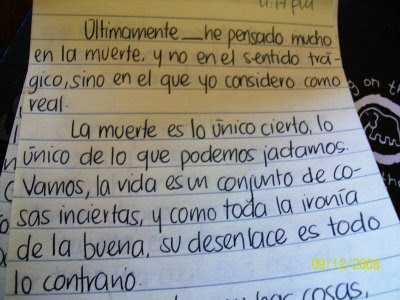 4:17 pm
Últimamente __ he pensado mucho
en la muerte, y no en el sentido trá-
gico, sino en el que yo considero como
real.
La muerte es lo único cierto, lo
único de lo que podemos jactarnos.
Vamos, la vida es un conjunto de co-
sas inciertas, y como toda la ironía
de la buena, su desenlace es todo
lo contrario.
hay cosas,
g on th
09/12/2008